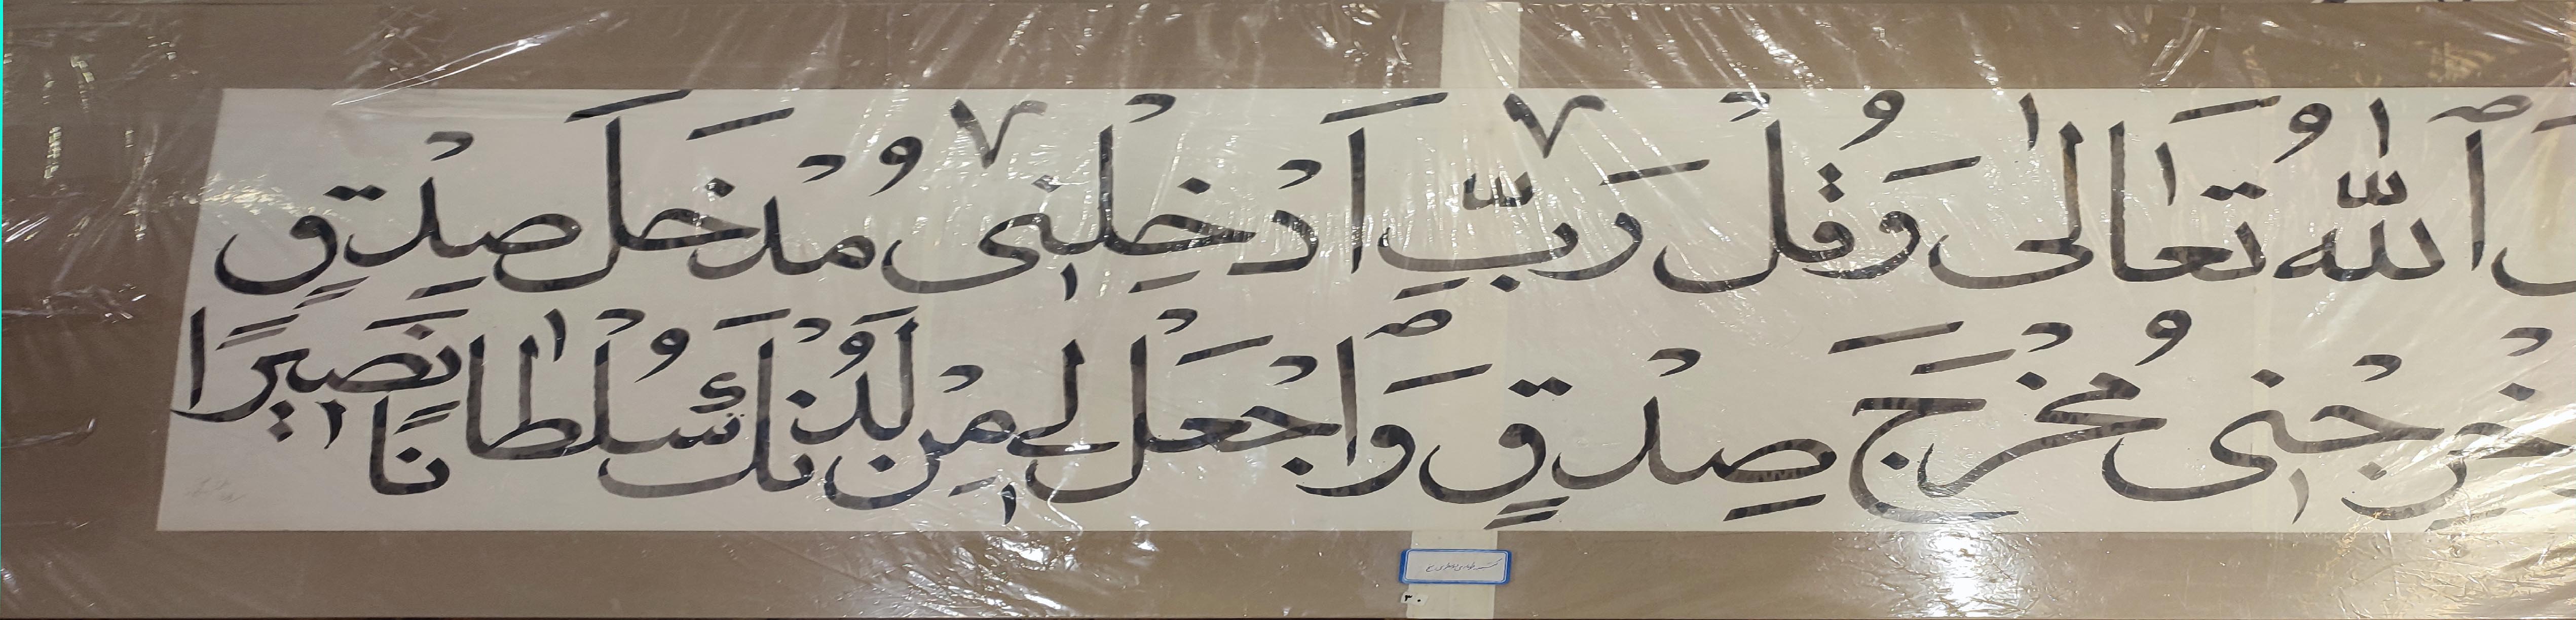 اللّٰهُ تَعَالٰى وَقُلْ رَبِّ اَدْخِلْنِى مُدْخَلَ صِدْقٍ
خْرِجْنِى مُخْرَجَ صِدْقٍ وَاجْعَلْ لِى مِنْ لَدُنْكَ سُلْطَانًا نَصِيرًا
٣٠